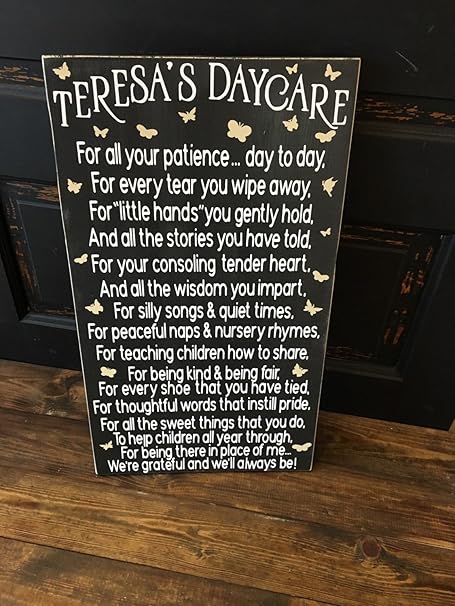 TERESA'S DAYCARE
For all your patience... day to day,
For every tear you wipe away,
For "little hands" you gently hold,
And all the stories you have told,
For your consoling tender heart,
And all the wisdom you impart,
For silly songs & quiet times,
For peaceful naps & nursery rhymes,
For teaching children how to share,
For being kind & being fair,
For every shoe that you have tied,
For thoughtful words that instill pride,
For all the sweet things that you do,
To help children all year through,
For being there in place of me...
We're grateful and we'll always be!